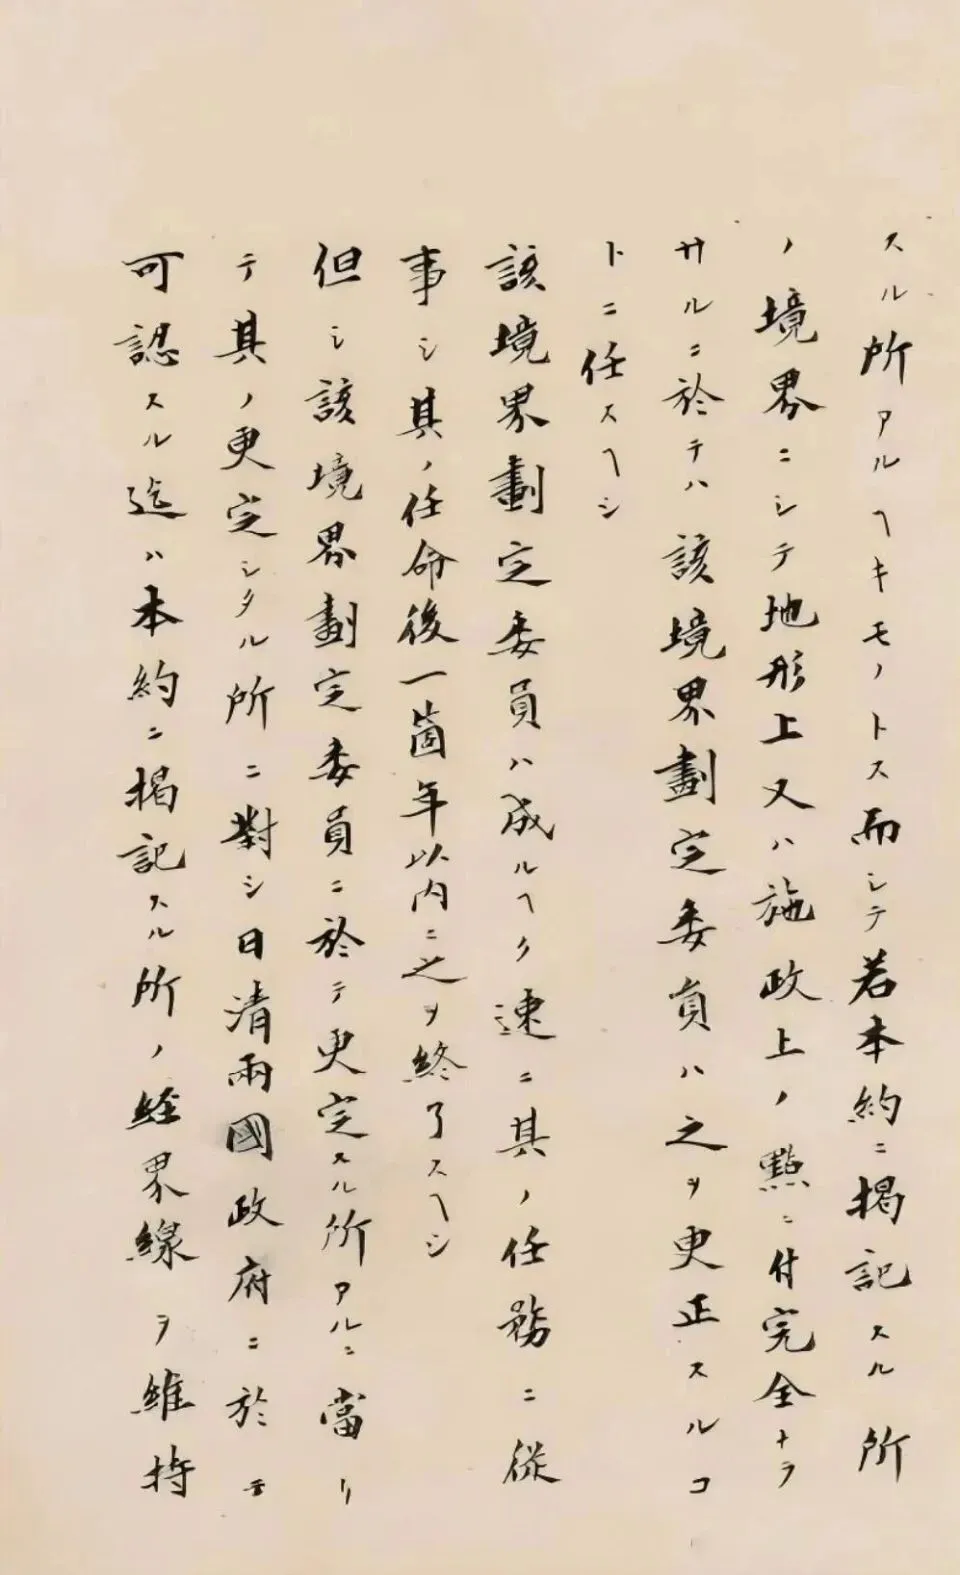 スル所アルヘキモノトス而シテ若本約ニ掲記スル所
ノ境界ニシテ地形上又ハ施政上ノ點ニ付完全ナラ
サルニ於テハ該境界劃定委員ハ之ヲ更正スルコ
トニ任スヘシ
該境界劃定委員ハ成ルヘク速ニ其ノ任務ニ從
事シ其ノ任命後一箇年以内ニ之ヲ終了スヘシ
但シ該境界劃定委員ニ於テ更定スル所アルニ當リ
テ其ノ更定シタル所ニ對シ日清兩國政府ニ於テ
可認スル迄ハ本約ニ掲記スル所ノ経界線ヲ維持